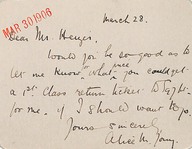 MAR 30 1906
March 28.
Dear Mr.
Would you be so good as to
let me know what price you could get
a 1st Class return ticket to
for me. if I should want to go.
Yours sincerely
Alice M.